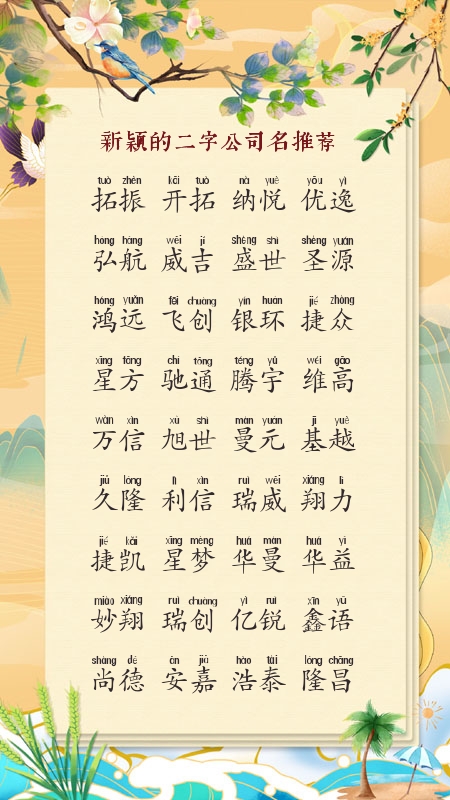 新颖的二字公司名推荐
tuò zhèn kāi tuò nà yuè yōu yì
拓振 开拓 纳悦 优逸
hóng háng wēi jí shèng shì shèng yuán
弘航 威吉 盛世 圣源
hóng yuǎn fēi chuàng yín huán jié zhòng
鸿远 飞创 银环 捷众
xīng fāng chí tōng téng yǔ wéi gāo
星方 驰通 腾宇 维高
wàn xìn xù shì màn yuán jī yuè
万信 旭世 曼元 基越
jiǔ lóng lì xìn ruì wēi xiáng lì
久隆 利信 瑞威 翔力
jié kǎi xīng mèng huá màn huá yì
捷凯 星梦 华曼 华益
miào xiáng ruì chuàng yì ruì xīn yǔ
妙翔 瑞创 亿锐 鑫语
shàng dé ān jiā hào tài lóng chāng
尚德 安嘉 浩泰 隆昌